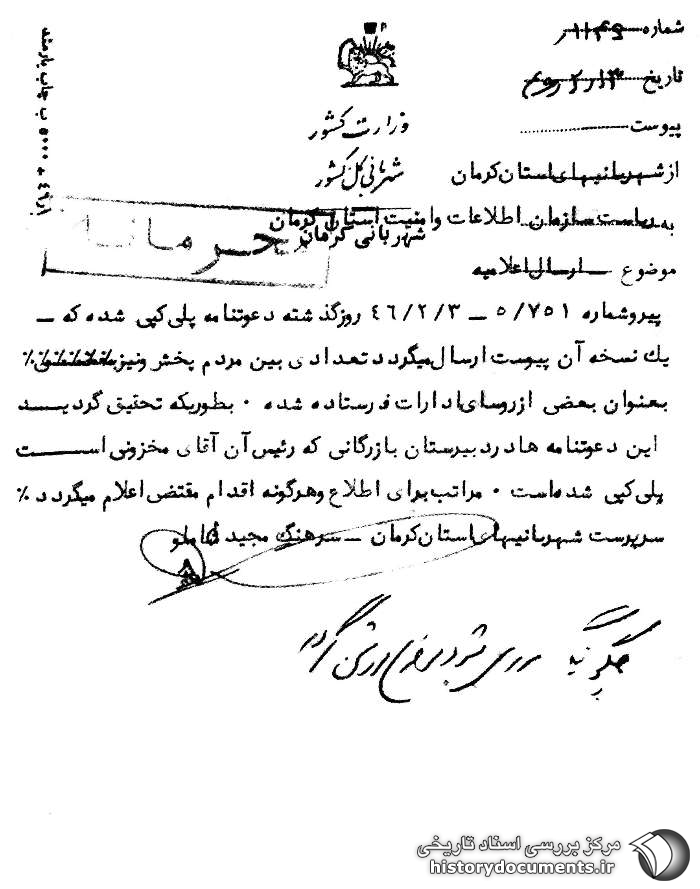 شماره
تاریخ
پیوست
وزارت کشور
شهربانی کل کشور
از شهربانیهای استان کرمان
به ریاست سازمان اطلاعات و امنیت استان کرمان
شهربانی کرمان
محرمانه
موضوع ارسال اعلامیه
پیرو شماره ۵/۷۵۱ ــ ۴۶/۲/۳ روز گذشته دعوتنامه پلی‌کپی شده که ــ
یك نسخه آن پیوست ارسال میگردد تعدادی بین مردم پخش و نیز
بعنوان بعضی از روسای ادارات فرستاده شده ۰ بطوریکه تحقیق گردیــد
این دعوتنامه ها در دبیرستان بازرگانی که رئیس آن آقای مخزونی اســـت
پلی‌کپی شده‌است ۰ مراتب برای اطلاع و هرگونه اقدام مقتضی اعلام میگردد ٪
سرپرست شهربانیهای استان کرمان ــ سرهنگ مجید
مرکز بررسی اسناد تاریخی
historydocuments.ir